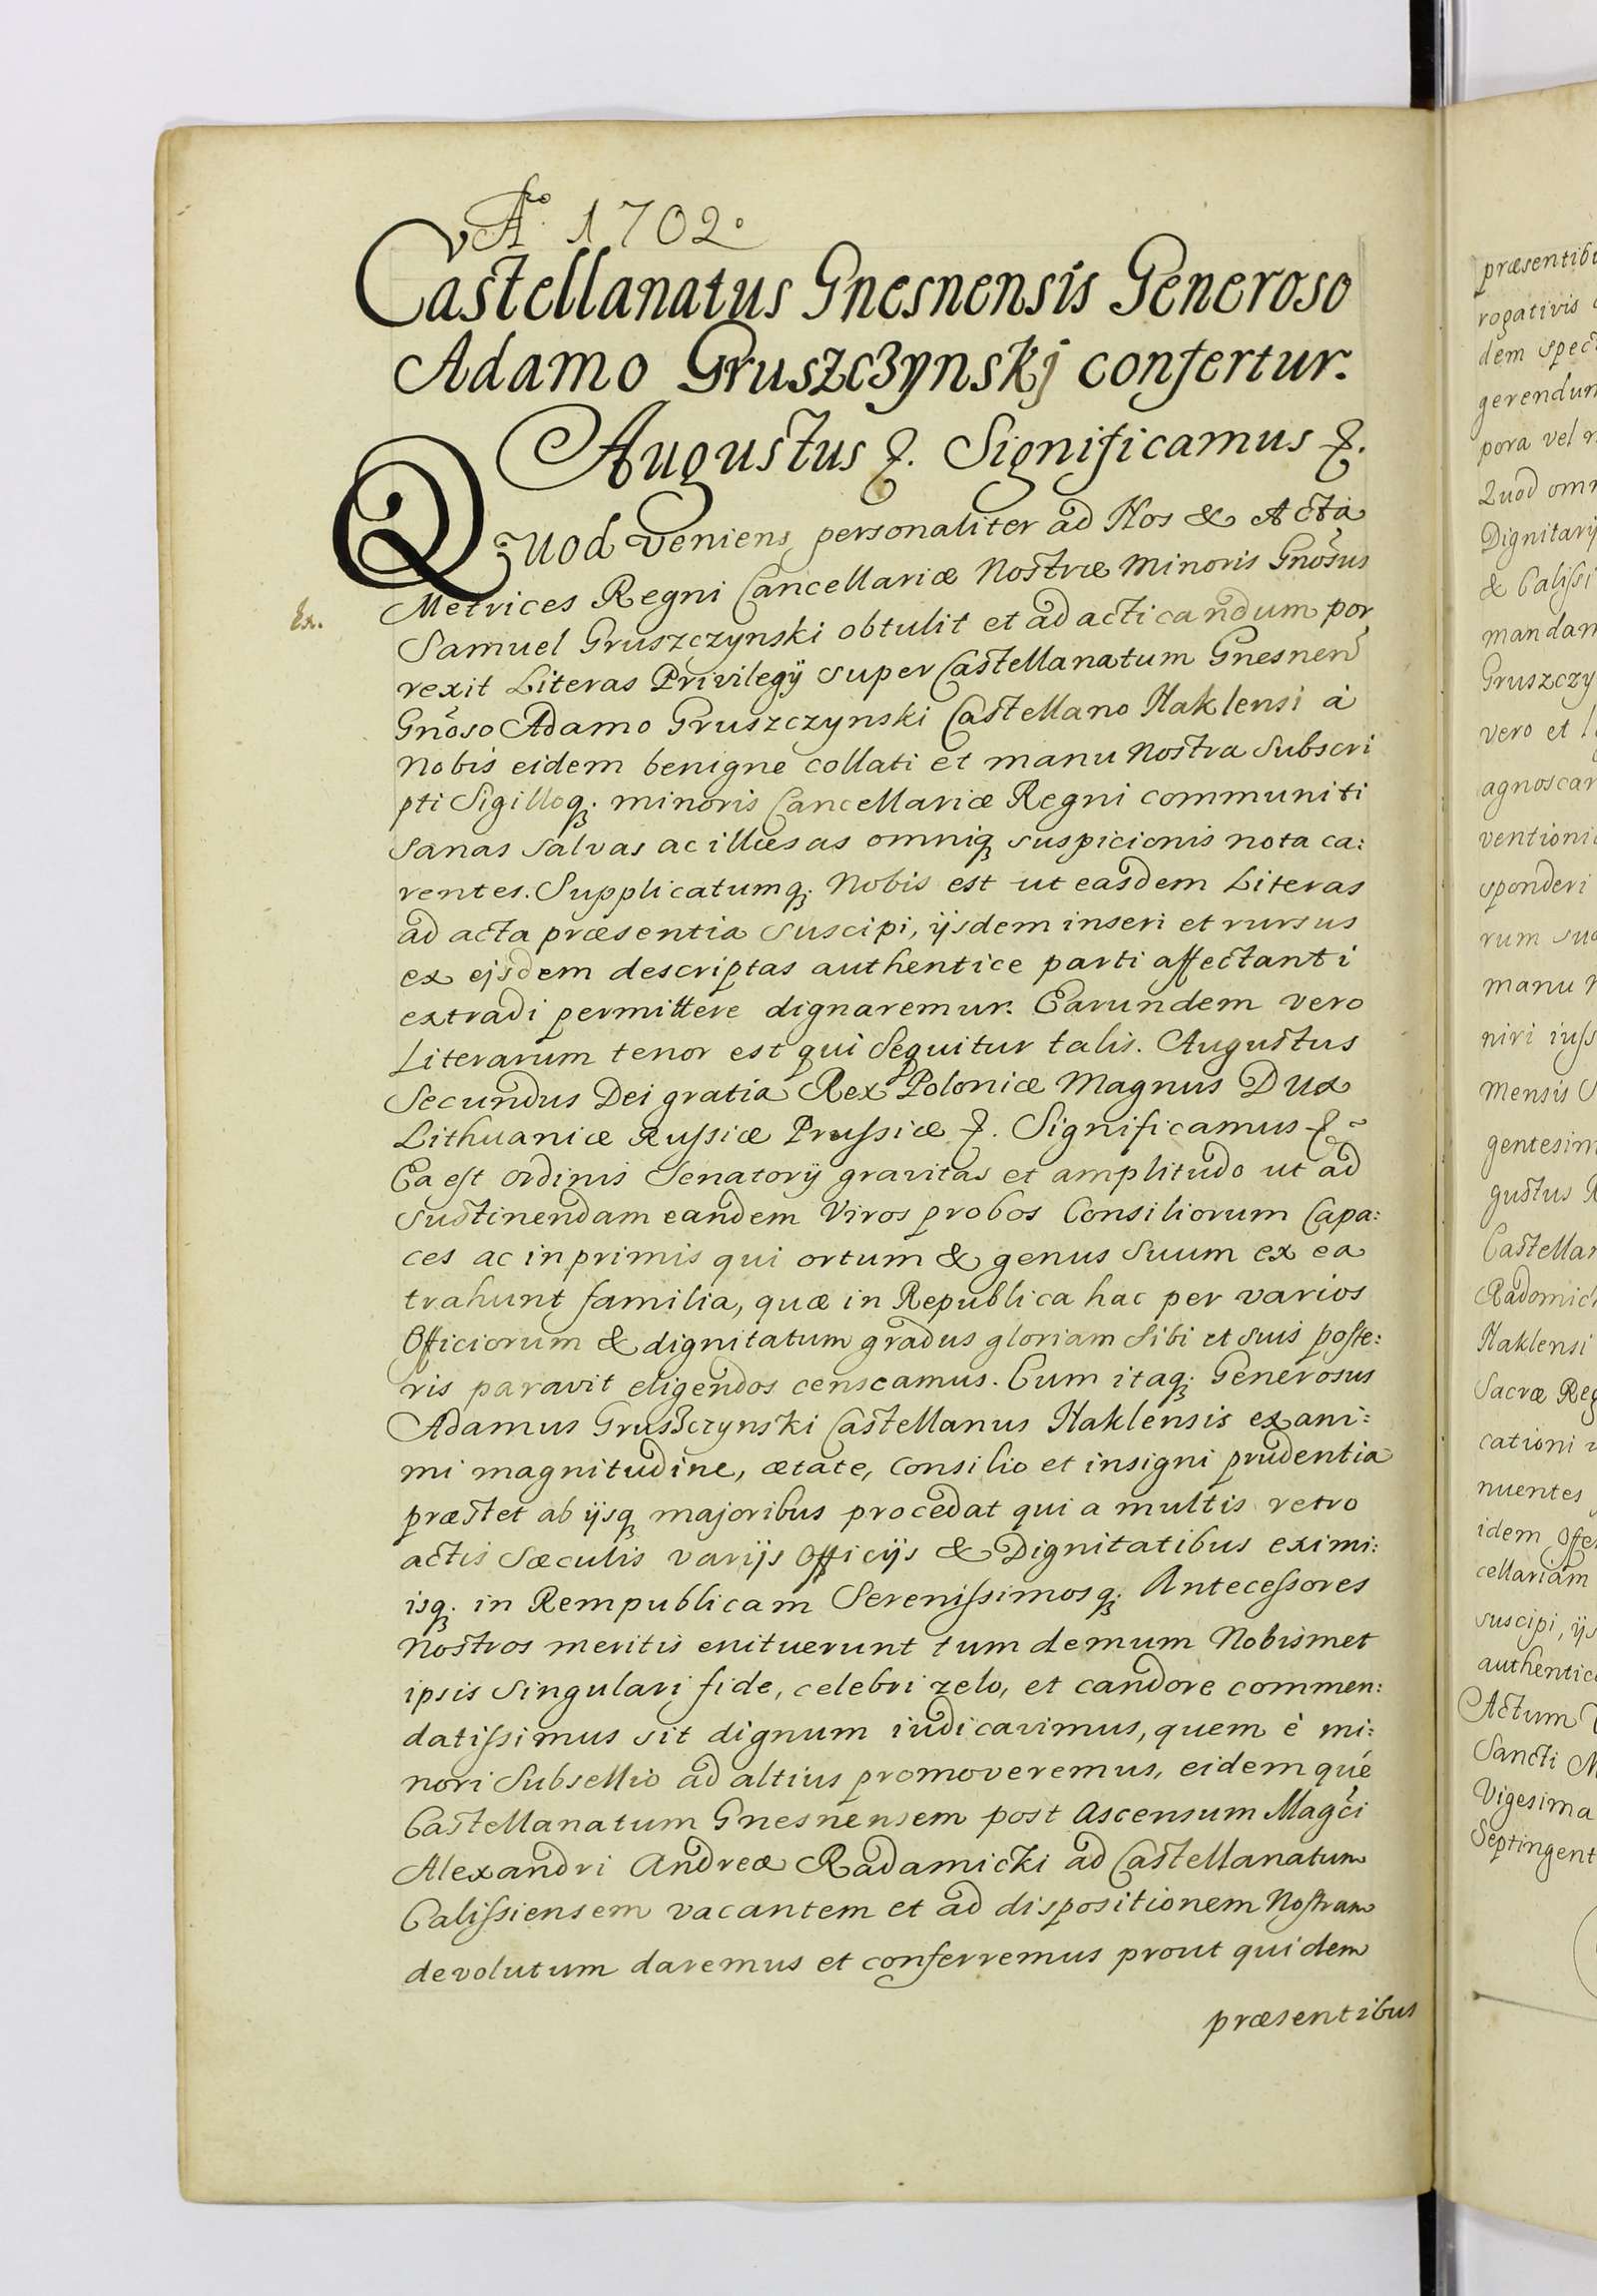 Aº. 1702.
Castellanatus Gnesnensis Generoso
Adamo Gruszczynskj confertur.
Augustus &. Significamus &.
Quod veniens personaliter ad Nos & Acta
Metrices Regni Cancellariæ Nostræ Minoris Gnosus
Ex.
Samuel Gruszczynski obtulit et ad acticandum por
rexit Literas Privilegij super Castellanatum Gnesnen
Gnoso Adamo Gruszczynski Castellano Naklensi à
Nobis eidem benigne collati et manu Nostra Subscri
pti Sigilloq. minoris Cancellariæ Regni communiti
sanas salvas ac illæsas omniq suspicionis nota ca:
rentes. Supplicatumq. Nobis est ut easdem Literas
ad acta præsentia suscipi, ijsdem inseri et rursus
ex ejsdem descriptas authentice parti affectanti
extradi permittere dignaremur. Earundem vero
Literarum tenor est qui sequitur talis. Augustus
Secundus Dei gratia Rex Poloniæ Magnus Dux
Lithuaniæ Russiæ Prussiæ &. Significamus &
Ea est ordinis Senatorij gravitas et amplitudo ut ad
sustinendam eandem Viros probos Consiliorum Capa:
ces ac inprimis qui ortum & genus suum ex ea
trahunt familia, quæ in Republica hac per varios
Officiorum & dignitatum gradus gloriam sibi et suis poste:
ris paravit eligendos censeamus. Cum itaq. Generosus
Adamus Gruszczynski Castellanus Naklensis ex ani:
mi magnitudine, ætate, Consilio et insigni prudentia
præstet ab ijsq majoribus procedat qui a multis retro
actis sæculis varijs Officijs & Dignitatibus eximi:
isq. in Rempublicam Serenissimosq. Antecessores
Nostros meritis enituerunt tum demum Nobismet
ipsis singulari fide, celebri zelo, et candore commen:
datissimus sit dignum iudicavimus, quem è mi:
nori Subsellio ad altius promoveremus, eidem qué
Castellanatum Gnesnensem post Ascensum Magci
Alexandri Andreæ Radamicki ad Castellanatum
Calissiensem vacantem et ad dispositionem Nostram
devolutum daremus et conferremus prout quidem
præsentibus
præsentibu
rogativis
dem spect
gerendum
pora vel
Quod omn
Dignitarij
& Calissi
mandam
Gruszczy
vero et
agnoscan
ventioni
sponderi
rum suo
manu N
niri iuss
Mensis S
gentesim
gustus R
Castellan
Radomick
Naklensi
Sacræ Reg
cationi
nuentes
idem Offe
cellariam
suscipi, ijs
authentice
Actum
Sancti M
Vigesima
Septingent